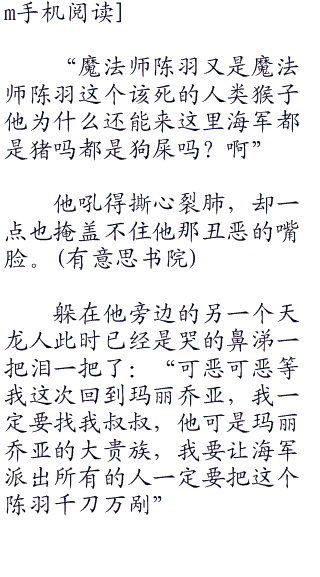 m手机阅读]
“魔法师陈羽又是魔法
师陈羽这个该死的人类猴子
他为什么还能来这里海军都
是猪吗都是狗屎吗？啊”
他吼得撕心裂肺，却一
点也掩盖不住他那丑恶的嘴
脸。(有意思书院)
躲在他旁边的另一个天
龙人此时已经是哭的鼻涕一
把泪一把了：“可恶可恶等
我这次回到玛丽乔亚，我一
定要找我叔叔，他可是玛丽
乔亚的大贵族，我要让海军
派出所有的人一定要把这个
陈羽千刀万剐”